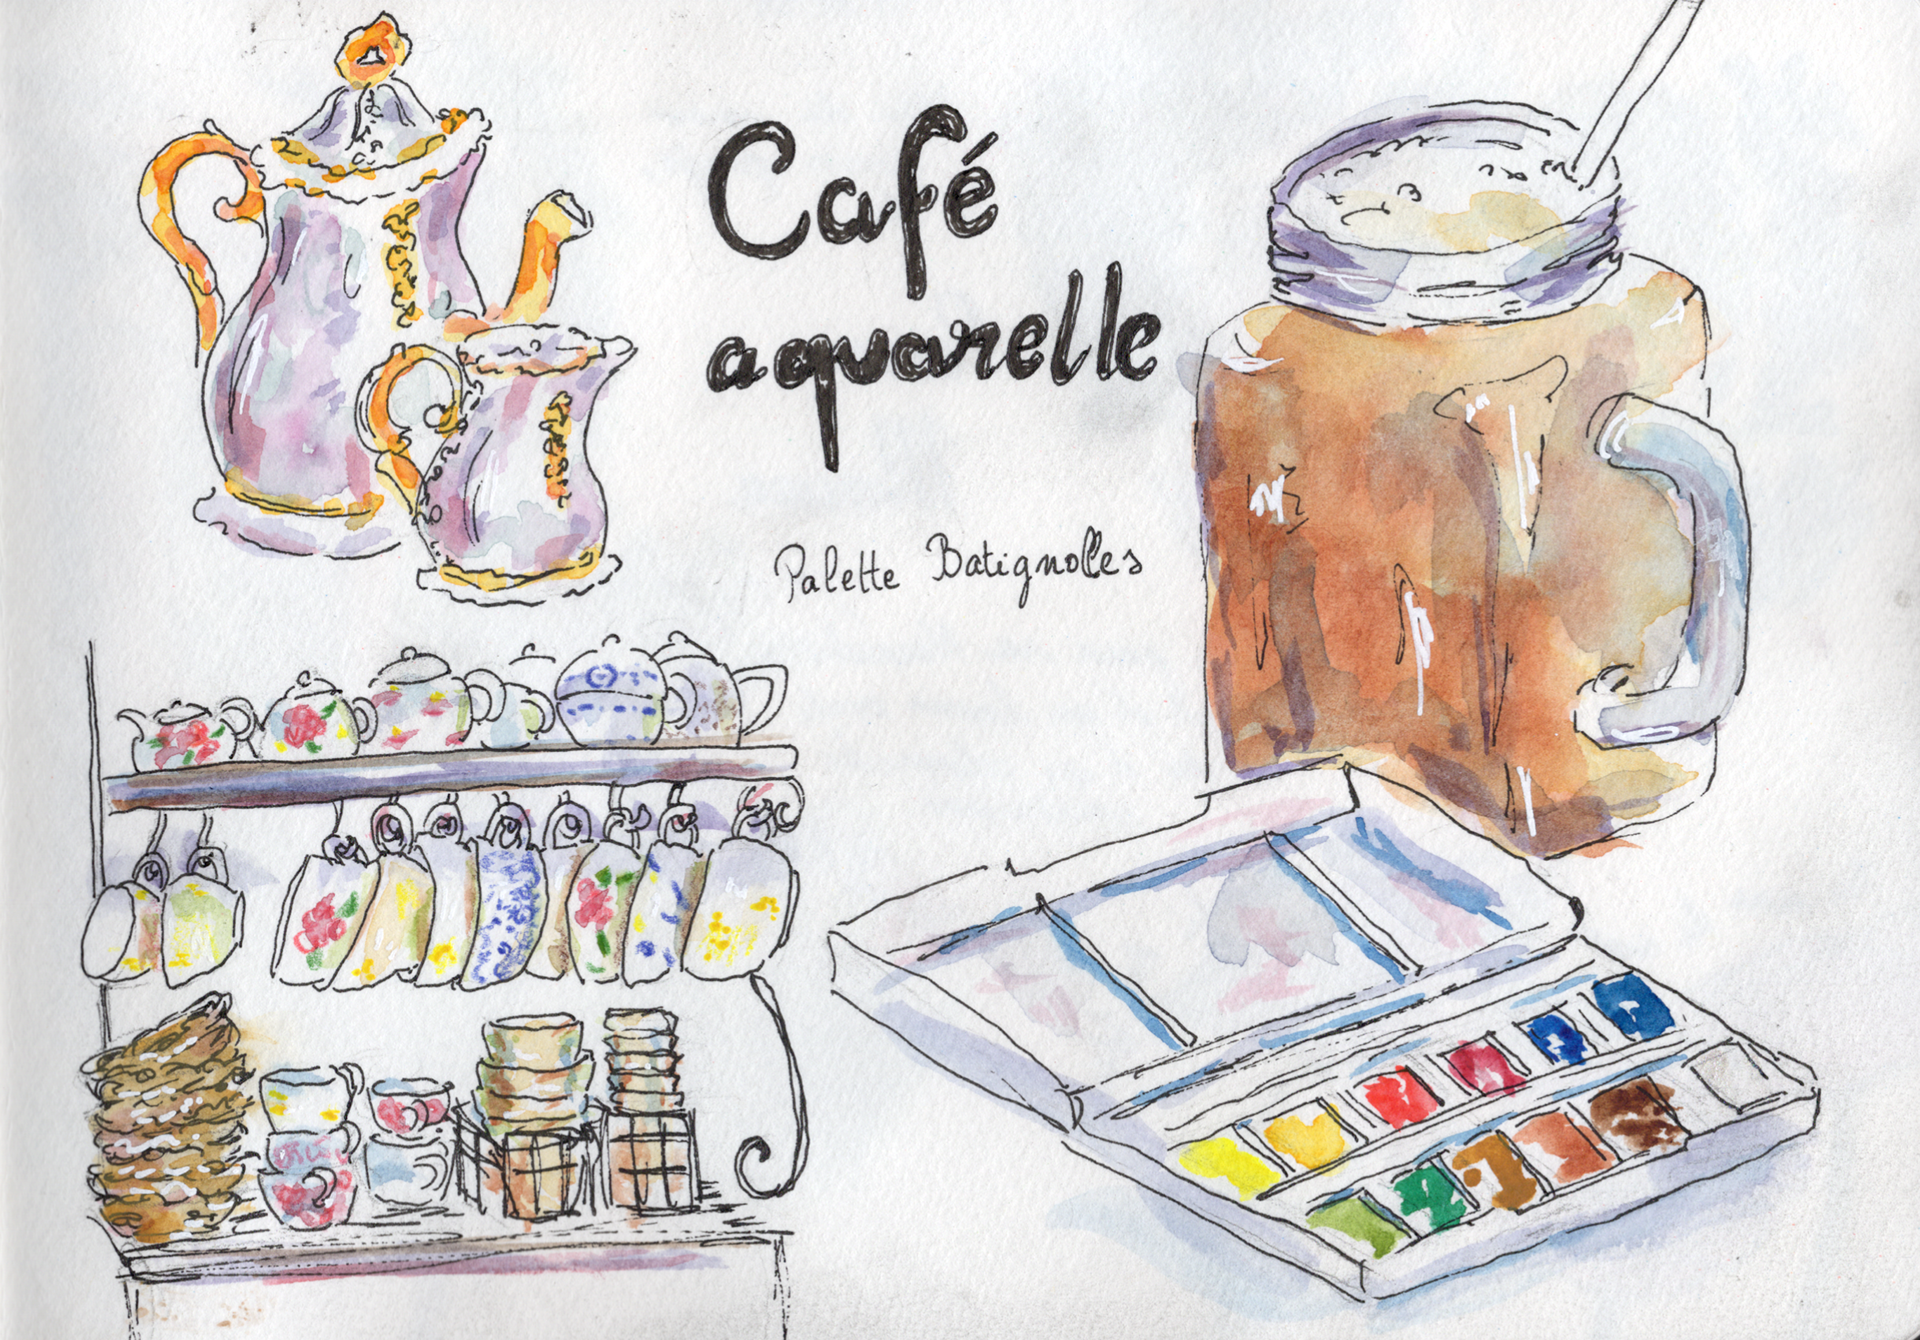 Café
aquarelle
Palette Batignolles